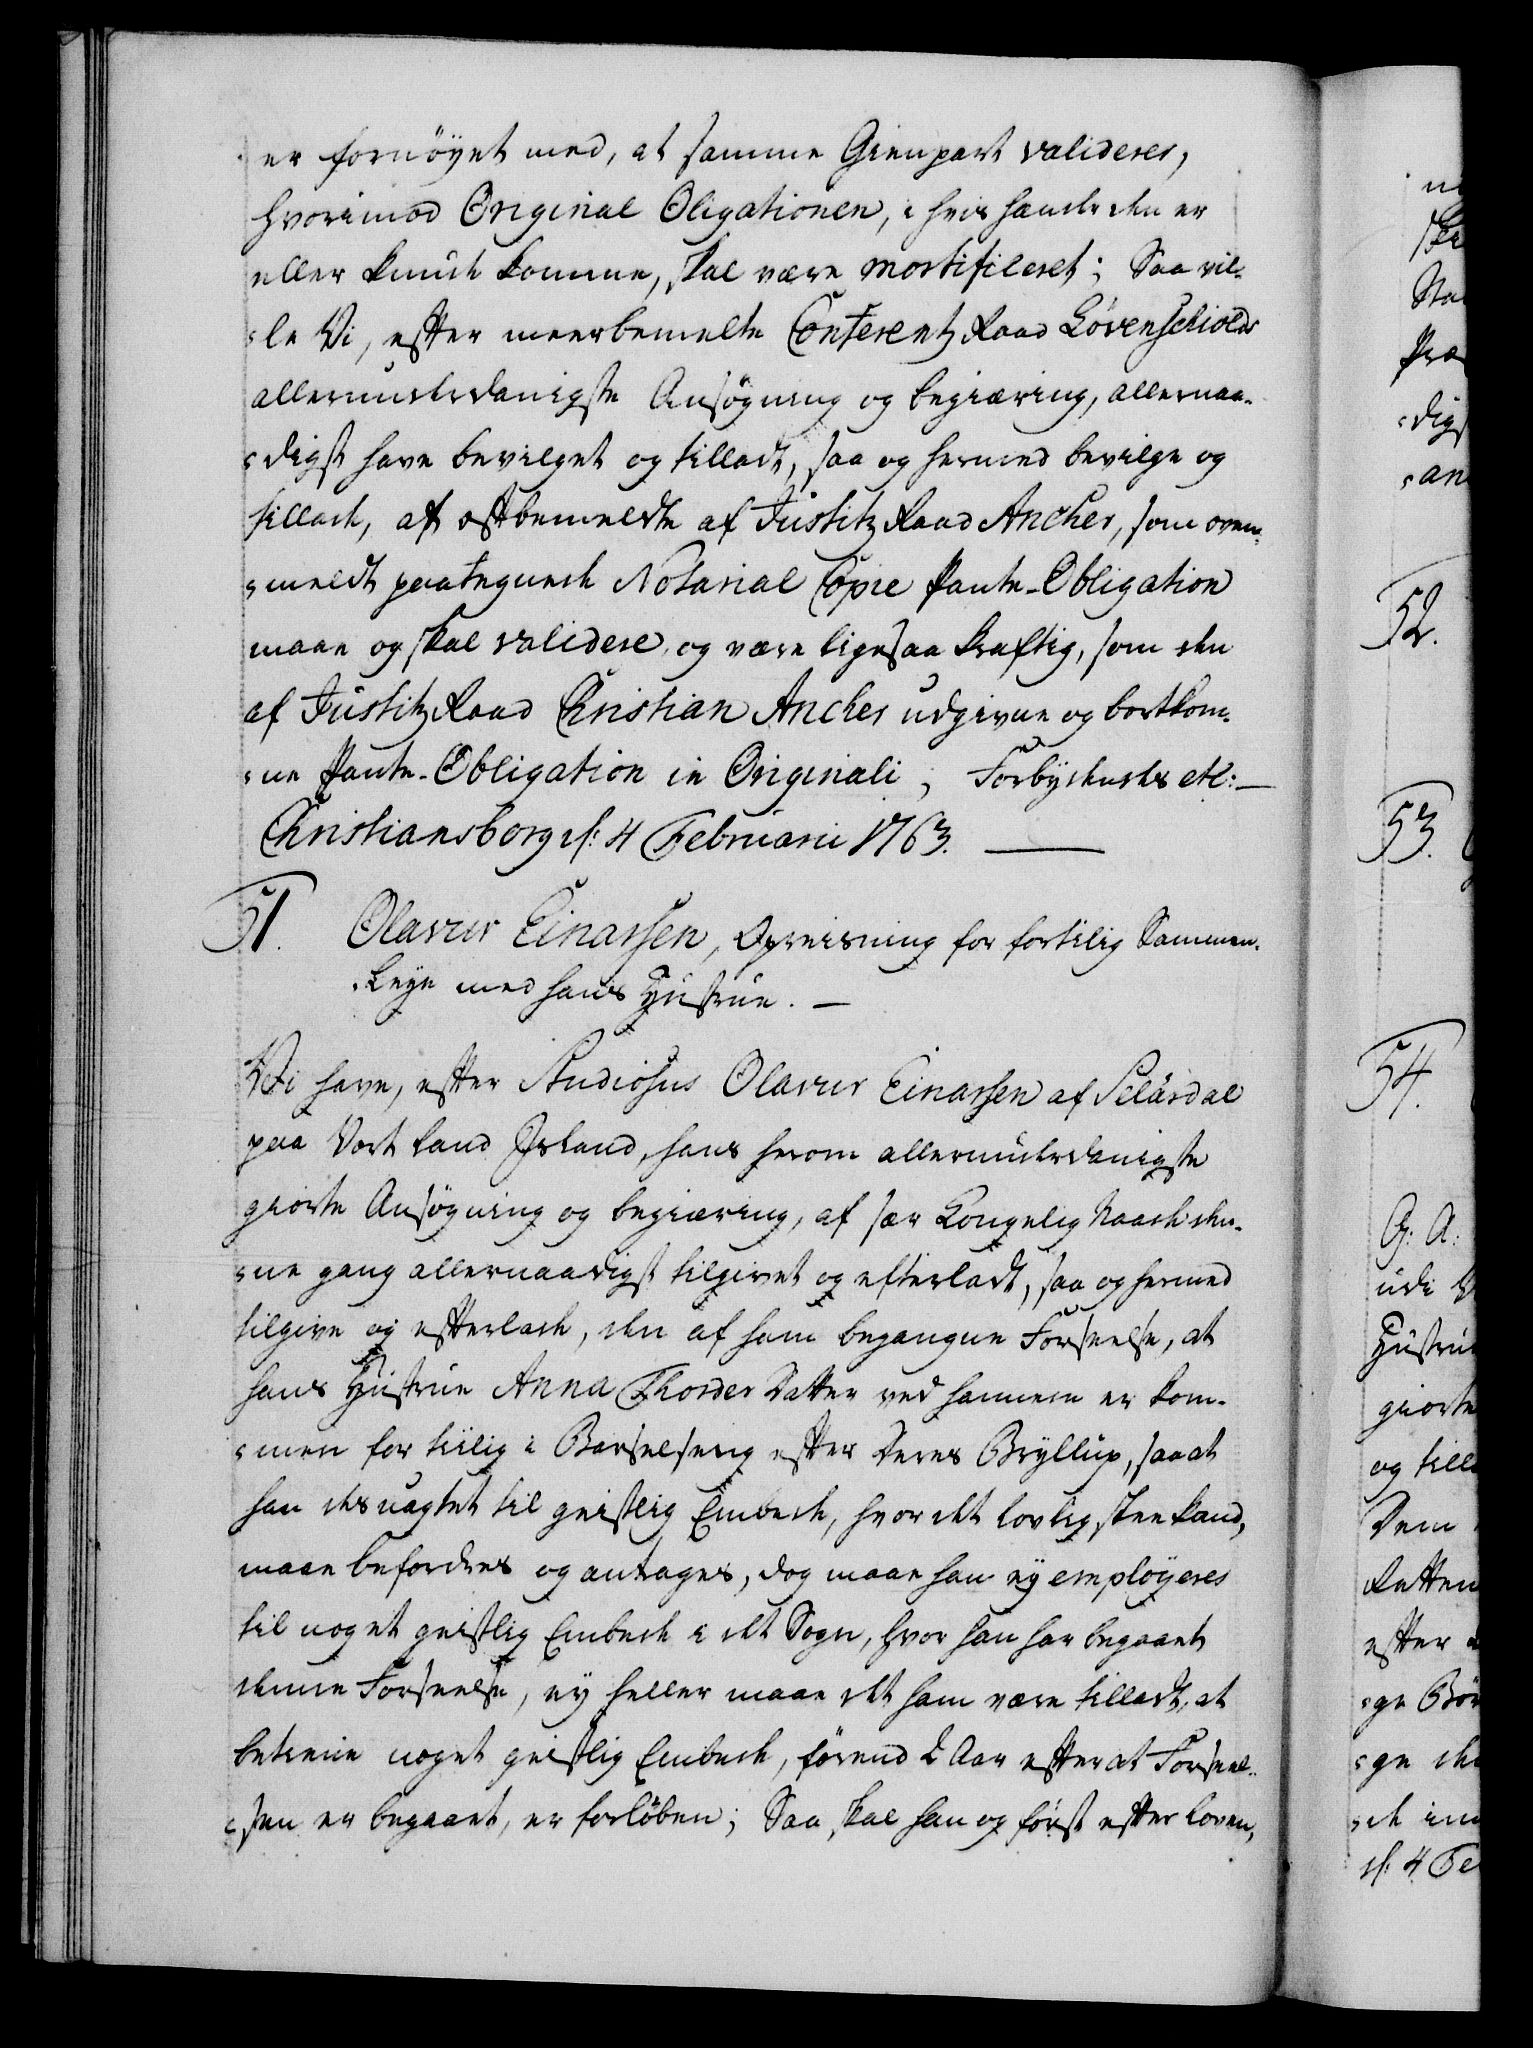 er fornöyet med, at samme Gienpart valideres,
hvorimod Original Oligationen, i hvis hænder den er
eller kunde komme, skal være mortificeret; Saa vil-
-le Vi, efter meerbemelte Conferentz Raad Løvenschiolds
allerunderdanigste Ansøgning og begiæring, allernaa-
-digst have bevilget og tilladt, saa og hermed bevilge og
tillade, at oftbemeldte af Justitz Raad Ancher, som oven-
-meldt paategnede Notarial Copie Pante-Obligation
maae og skal validere og være ligesaa kraftig, som den
af Justitz Raad Christian Ancher udgivne og bortkom-
-ne Pante-Obligation in Originali; Forbydendes etc:
Christiansborg d: 4 Februarii 1763.
51. Olavur Einarssen, Opreisning for fortilig Sammen-
-Leye med hans Hustrue.
Vi have, efter Studiosus Olavur Einarssen af Selárdal
paa Vort Land Island, hans herom allerunderdanigste
giorte Ansøgning og begiæring, af sær Kongelig Naade den-
-ne gang allernaadigst tilgivet og efterladt, saa og hermed
tilgive og efterlade, den af ham begangne Forseelse, at
hans Hustrue Anna Thorder Datter ved hannem er kom-
-men for tiilig i Barselseng efter Deres Bryllup, saa at
han desuagtet til geistlig Embede, hvor det lovlig skee kand,
maae befordres og antages, dog maae han ey employeres
til noget geistlig Embede i det Sogn, hvor han har begaaet
denne Forseelse, ey heller maae det ham være tilladt, at
betreene noget geistlig Embede, førend 2 Aar efter at Forseel-
-sen er begaaet, er forløben; Saa skal han og først efter Loven,
52.
53.
54.